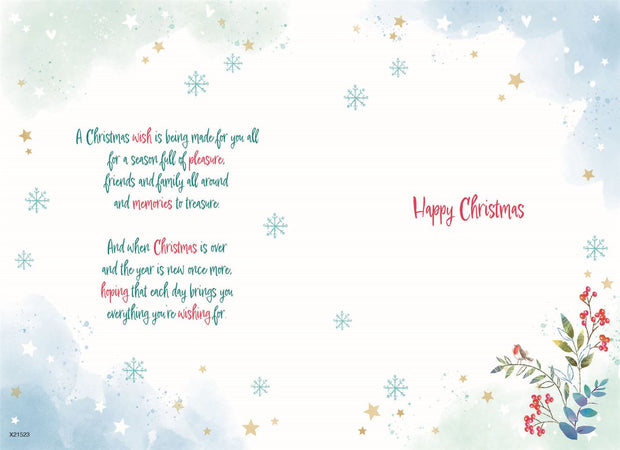 A Christmas wish is being made for you all
for a season full of pleasure,
friends and family all around
and memories to treasure.
And when Christmas is over
and the year is new once more,
hoping that each day brings you
everything you're wishing for.
Happy Christmas
X21523